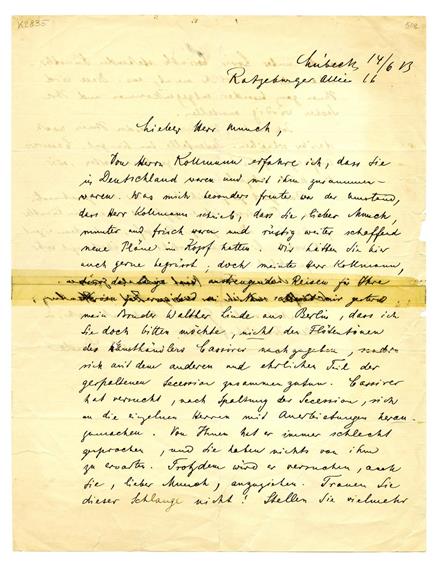 K2835
Lübeck 14/6 13
Ratzeburger Allee 16
Lieber Herr Munch,
Von Herrn Kollmann erfahre ich, dass Sie
in Deutschland waren und mit ihm zusammen-
waren. Was mich besonders freute war der Umstand,
dass Herr Kollmann schrieb, dass Sie, lieber Munch,
munter und frisch waren und rüstig weiter schaffend
neue Pläne im Kopf hatten. Wir hätten Sie hier
auch gerne begrüsst; doch meinte Herr Kollmann,
anstrengender Reisen für Ihre
mein Bruder Walther Linde aus Berlin, dass ich
Sie doch bitten möchte, nicht den Flötentönen
des Kunsthändlers Cassirer nachzugeben, sondern
sich mit dem anderen und ehrlichen Teil der
gespaltenen Secession zusammenzutun. Cassirer
hat versucht, nach Spaltung der Secession, sich
an die einzelnen Herren mit Anerbietungen heran-
zumachen. Von Ihnen hat er immer schlecht
gesprochen, und Sie haben nichts von ihm
zu erwarten. Trotzdem wird er versuchen, auch
Sie, lieber Munch, anzuziehen. Trauen Sie
dieser Schlange nicht! Stellen Sie vielmehr